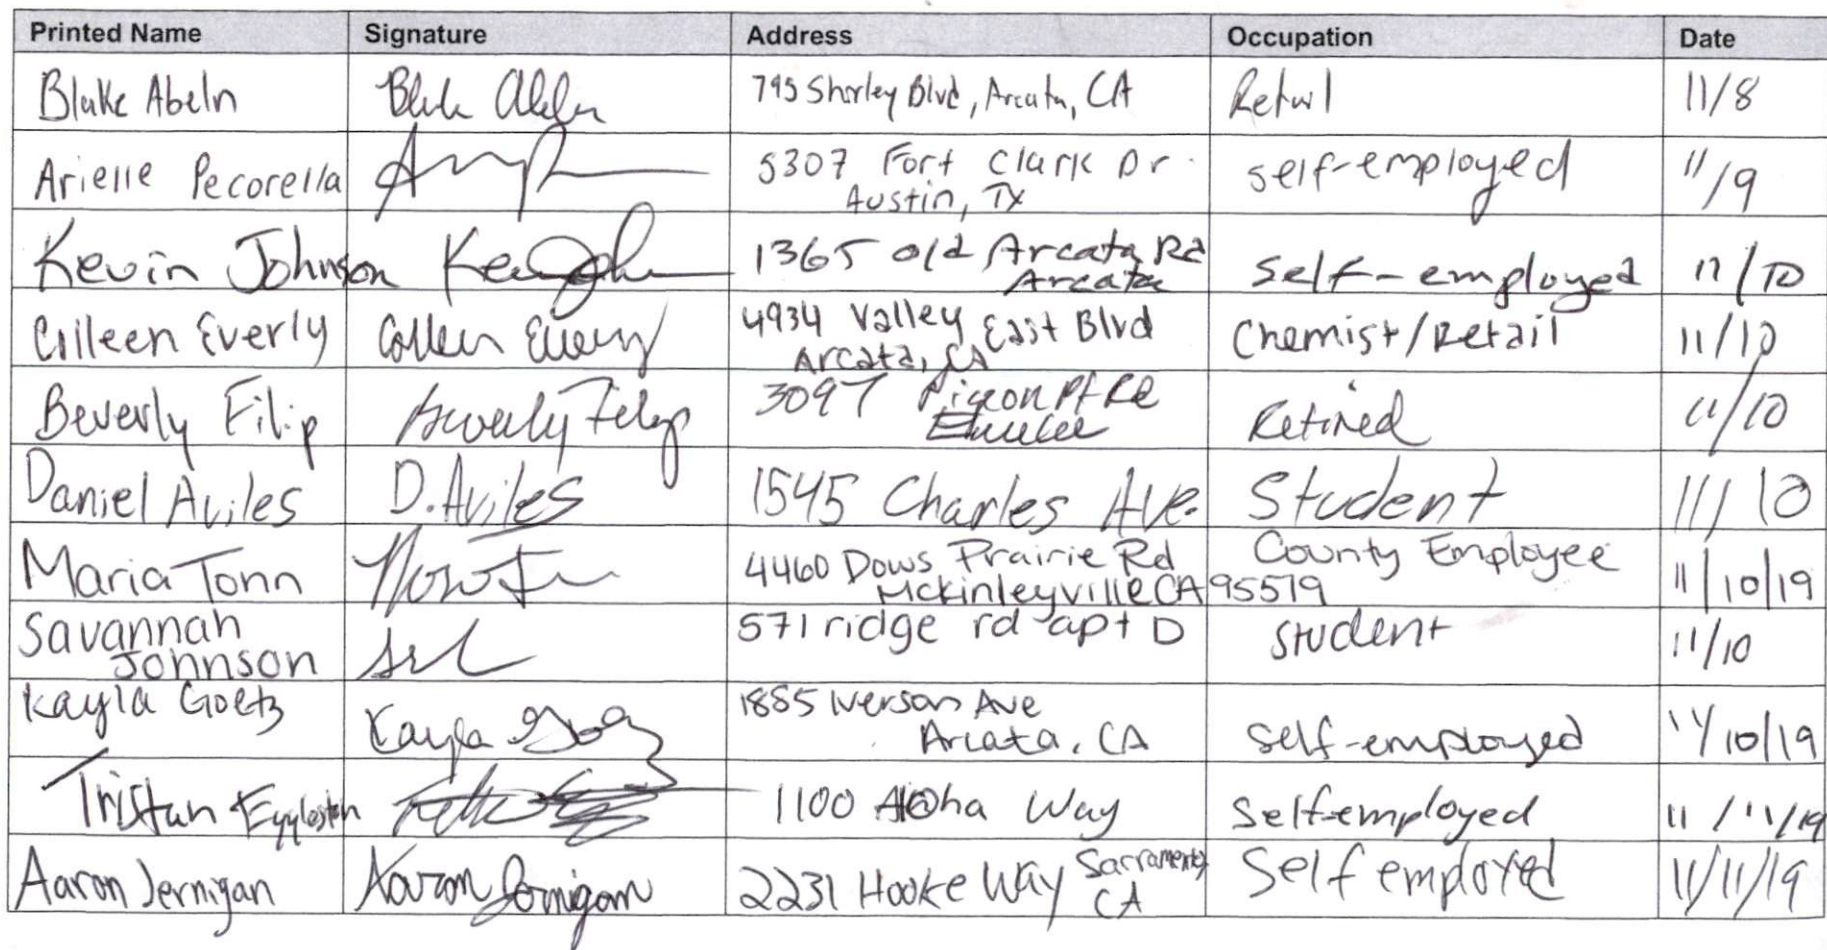 Printed Name Signature Address Occupation Date
Blake Abeln Blake Abeln 795 Shirley Blvd, Arcata, CA Retail 11/8
Arielle Pecorella 5307 Fort Clark Dr. Austin, TX self-employed 11/9
Kevin Johnson 1365 old Arcata Rd Arcata self-employed 11/10
Colleen Everly Colleen Everly 4934 Valley East Blvd Arcata, CA Chemist/Retail 11/10
Beverly Filip Beverly Filip 3097 Pigeon Pt Rd Eureka Retired 11/10
Daniel Aviles D. Aviles 1545 Charles Ave. Student 11/10
Maria Tonn 4460 Dows Prairie Rd McKinleyville CA 95519 County Employee 11/10/19
Savannah Johnson 571 ridge rd apt D student 11/10
Kayla Goetz Kayla Goetz 1885 Iverson Ave Arcata, CA self-employed 11/10/19
Tristan Eggleston 1100 Aloha Way Self-employed 11/11/19
Aaron Jernigan Aaron Jernigan 2231 Hooke Way Sacramento CA Self employed 11/11/19